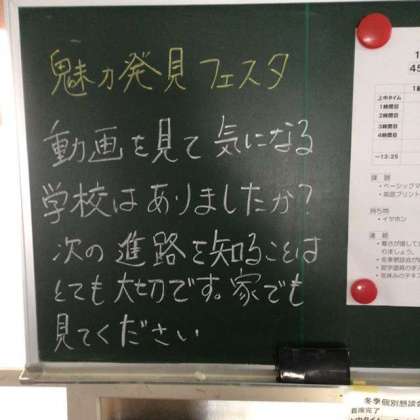 魅力発見フェスタ
動画を見て気になる
学校はありましたか?
次の進路を知ることは
とても大切です。家でも
見てください
上中タイム
1時間目
2時間目
3時間目
4時間目
~13:25
課題
・ベーシックマ
持ち物
・イヤホン
連絡
冬季個別懇談会